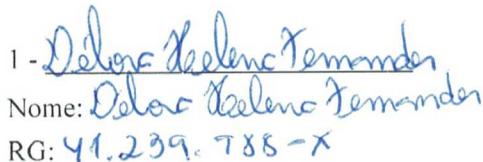 1 - Débora Heelena Fernandes
Nome: Débora Heelena Fernandes
RG: 41.239.788-X